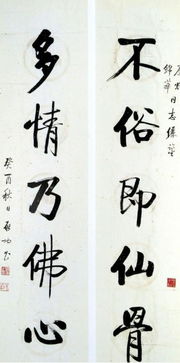 不俗即仙骨
多情乃佛心
癸酉秋日 启功书